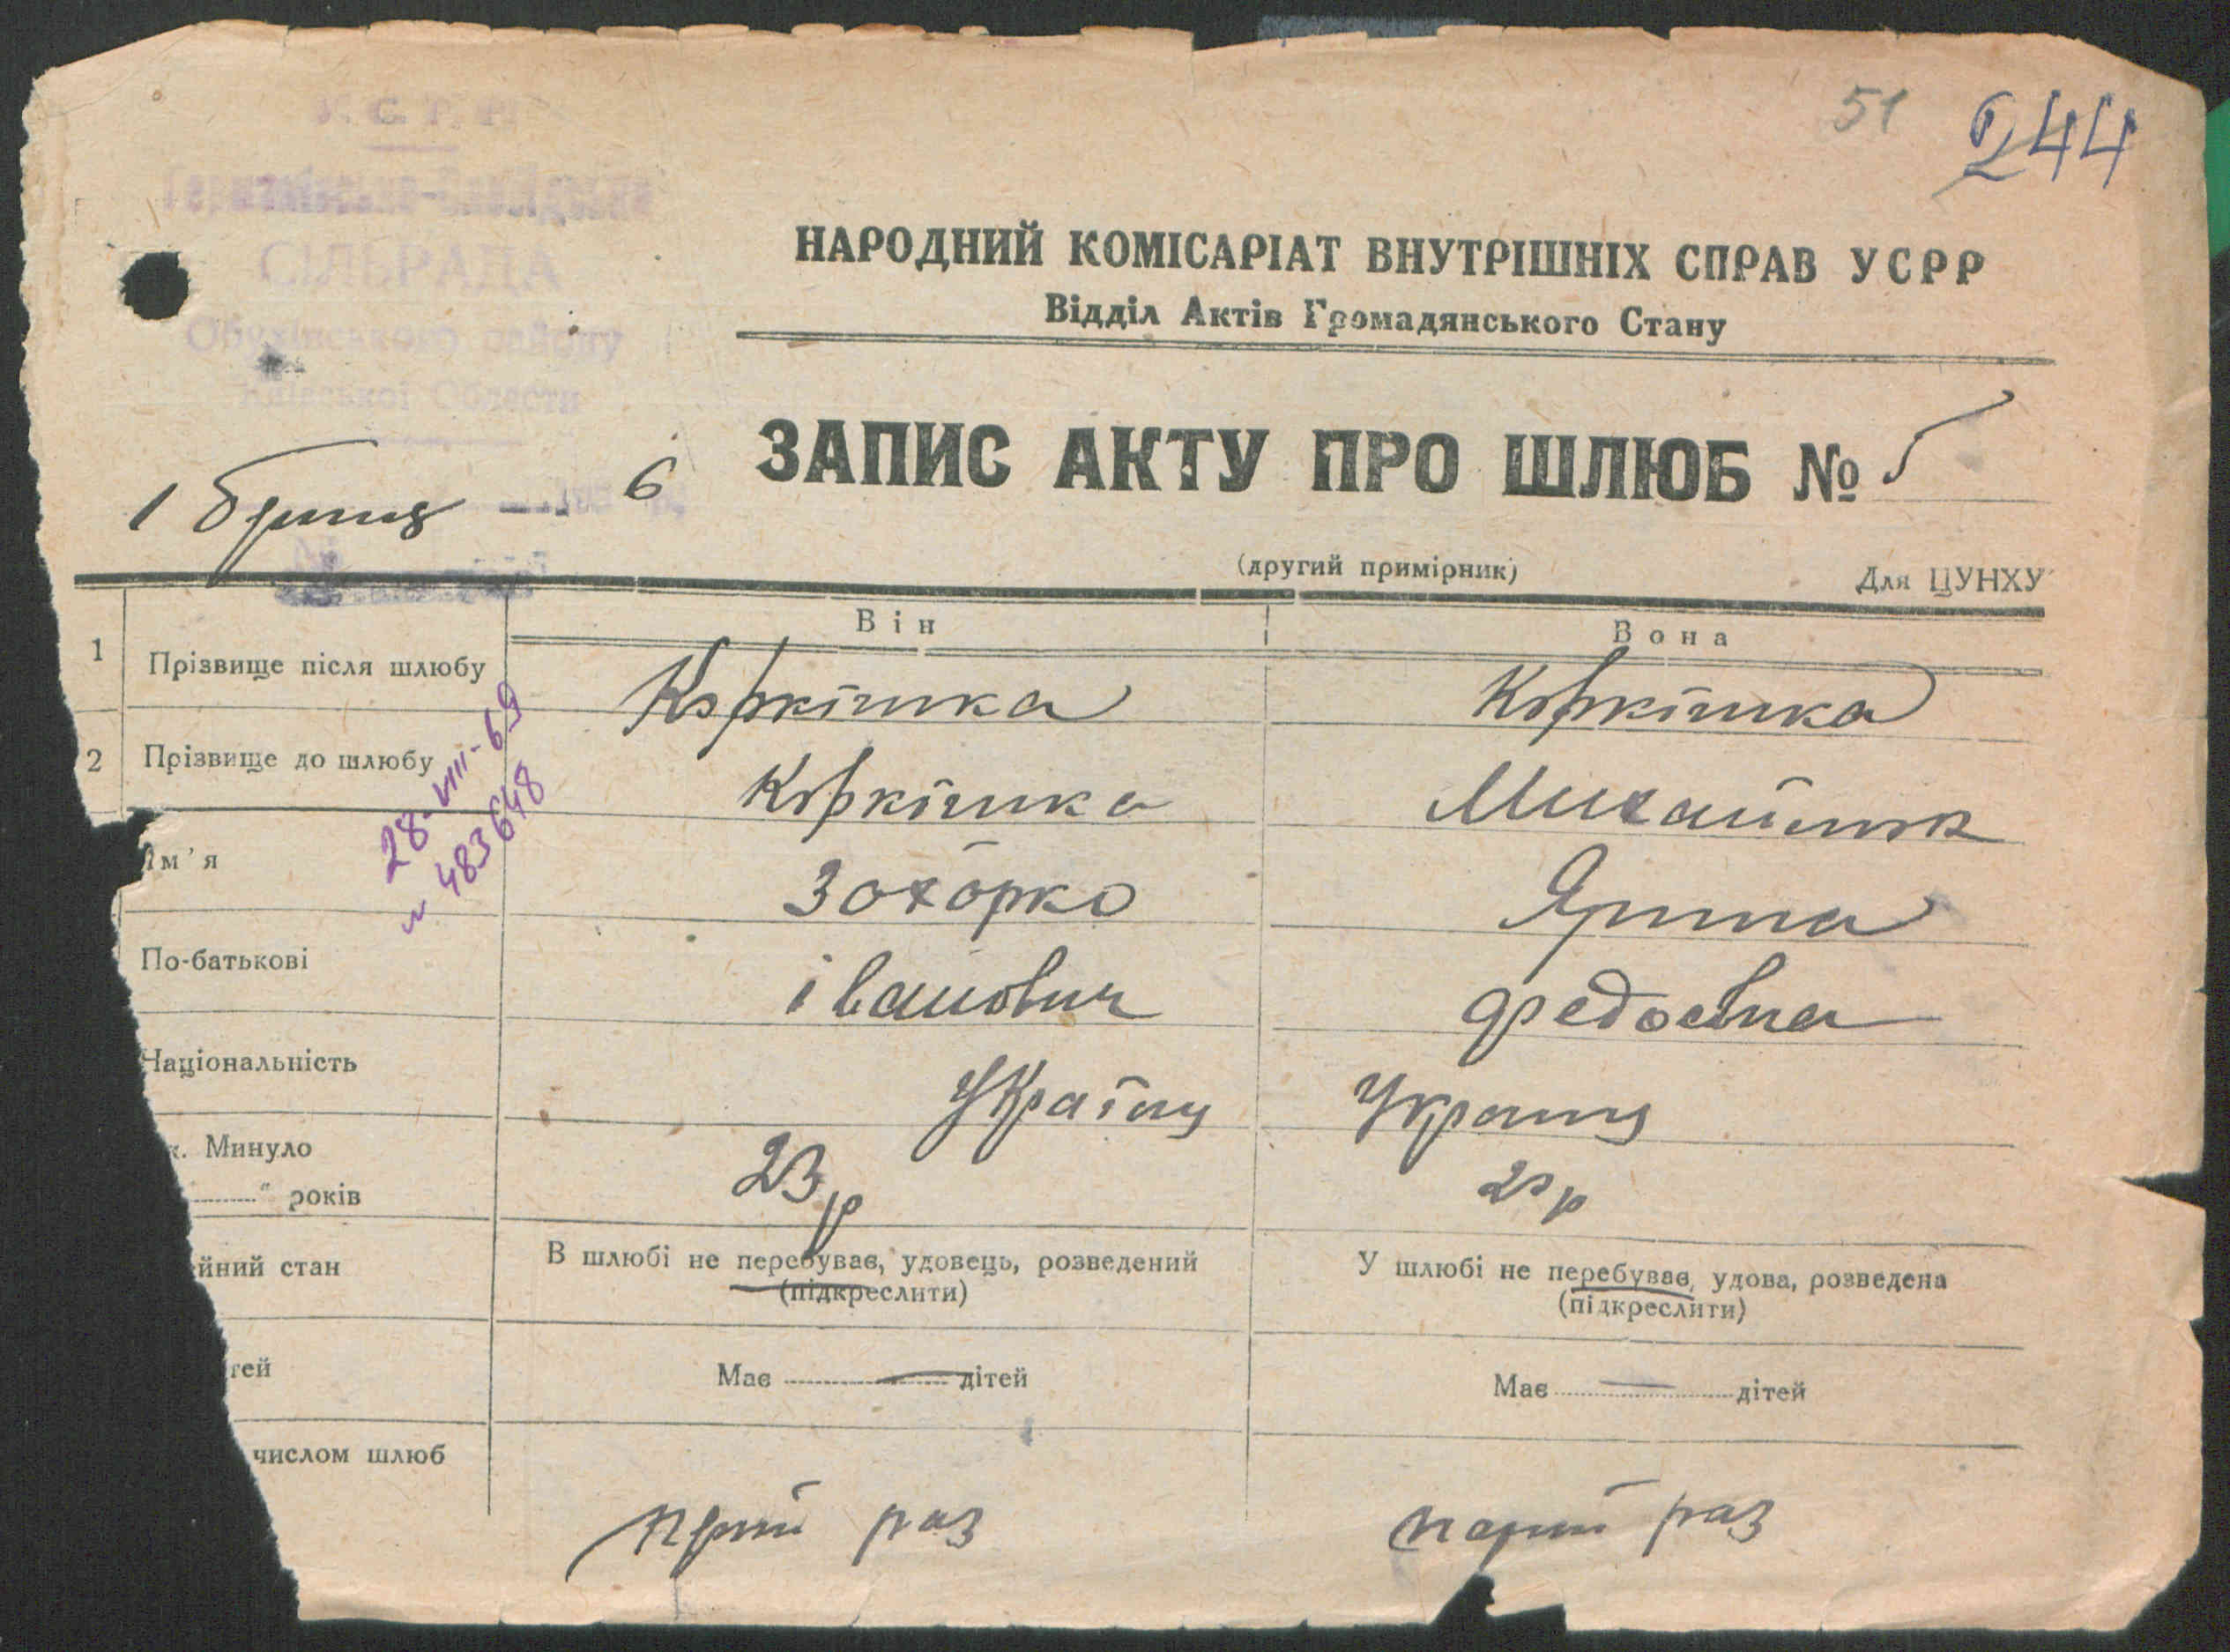 51 244
СІЛЬРАДА
Обухівського району
Київської Области
НАРОДНИЙ КОМІСАРІАТ ВНУТРІШНІХ СПРАВ УСРР
Відділ Актів Громадянського Стану
ЗАПИС АКТУ ПРО ШЛЮБ № 5
1 6
(другий примірник) Для ЦУНХУ
Він Вона
1 Прізвище після шлюбу Коркішка Коркішка
2 Прізвище до шлюбу Коркішка Михайлюк
28-VIII-69
483648
Ім'я Зохорко Ярина
По-батькові іванович Федосівна
Національність Україну Украину
Минуло 23 р
" років
йний стан В шлюбі не перебуває, удовець, розведений У шлюбі не перебуває, удова, розведена
(підкреслити) (підкреслити)
тей Має дітей Має дітей
числом шлюб
раз раз